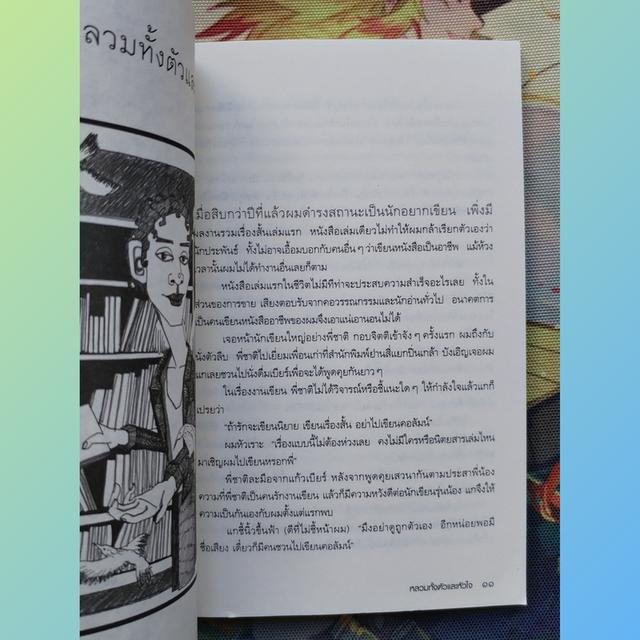 ลวมทั้งตัวแล
มื่อสิบกว่าปีที่แล้วผมดำรงสถานะเป็นนักอยากเขียน เพิ่งมี
ผลงานรวมเรื่องสั้นเล่มแรก หนังสือเล่มเดียวไม่ทำให้ผมกล้าเรียกตัวเองว่า
นักประพันธ์ ทั้งไม่อาจเอื้อมบอกกับคนอื่นๆ ว่าเขียนหนังสือเป็นอาชีพ แม้ห้วง
วลานั้นผมไม่ได้ทำงานอื่นเลยก็ตาม
หนังสือเล่มแรกในชีวิตไม่มีทีท่าจะประสบความสำเร็จอะไรเลย ทั้งใน
ส่วนของการขาย เสียงตอบรับจากคอวรรณกรรมและนักอ่านทั่วไป อนาคตการ
เป็นคนเขียนหนังสืออาชีพของผมจึงเอาแน่เอานอนไม่ได้
เจอหน้านักเขียนใหญ่อย่างพี่ชาติ กอบจิตติเข้าจังๆ ครั้งแรก ผมถึงกับ
นั่งตัวลีบ พี่ชาติไปเยี่ยมเพื่อนเก่าที่สำนักพิมพ์ย่านสี่แยกปิ่นเกล้า บังเอิญเจอผม
แกเลยชวนไปนั่งดื่มเบียร์เพื่อจะได้พูดคุยกันยาวๆ
ในเรื่องงานเขียน พี่ชาติไม่ได้วิจารณ์หรือชี้แนะใดๆ ให้กำลังใจแล้วแกก็
ปรยว่า
“ถ้ารักจะเขียนนิยาย เขียนเรื่องสั้น อย่าไปเขียนคอลัมน์”
ผมหัวเราะ “เรื่องแบบนี้ไม่ต้องห่วงเลย คงไม่มีใครหรือนิตยสารเล่มไหน
มาเชิญผมไปเขียนหรอกพี่”
พี่ชาติละมือจากแก้วเบียร์ หลังจากพูดคุยเสวนากันตามประสาพี่น้อง
ความที่พี่ชาติเป็นคนรักงานเขียน แล้วก็มีความหวังดีต่อนักเขียนรุ่นน้อง แกจึงให้
ความเป็นกันเองกับผมตั้งแต่แรกพบ
แกชี้นิ้วขึ้นฟ้า (ดีที่ไม่ชี้หน้าผม) “มึงอย่าดูถูกตัวเอง อีกหน่อยพอมี
ชื่อเสียง เดี๋ยวก็มีคนชวนไปเขียนคอลัมน์”
หลวมทั้งตัวและหัวใจ ๑๑